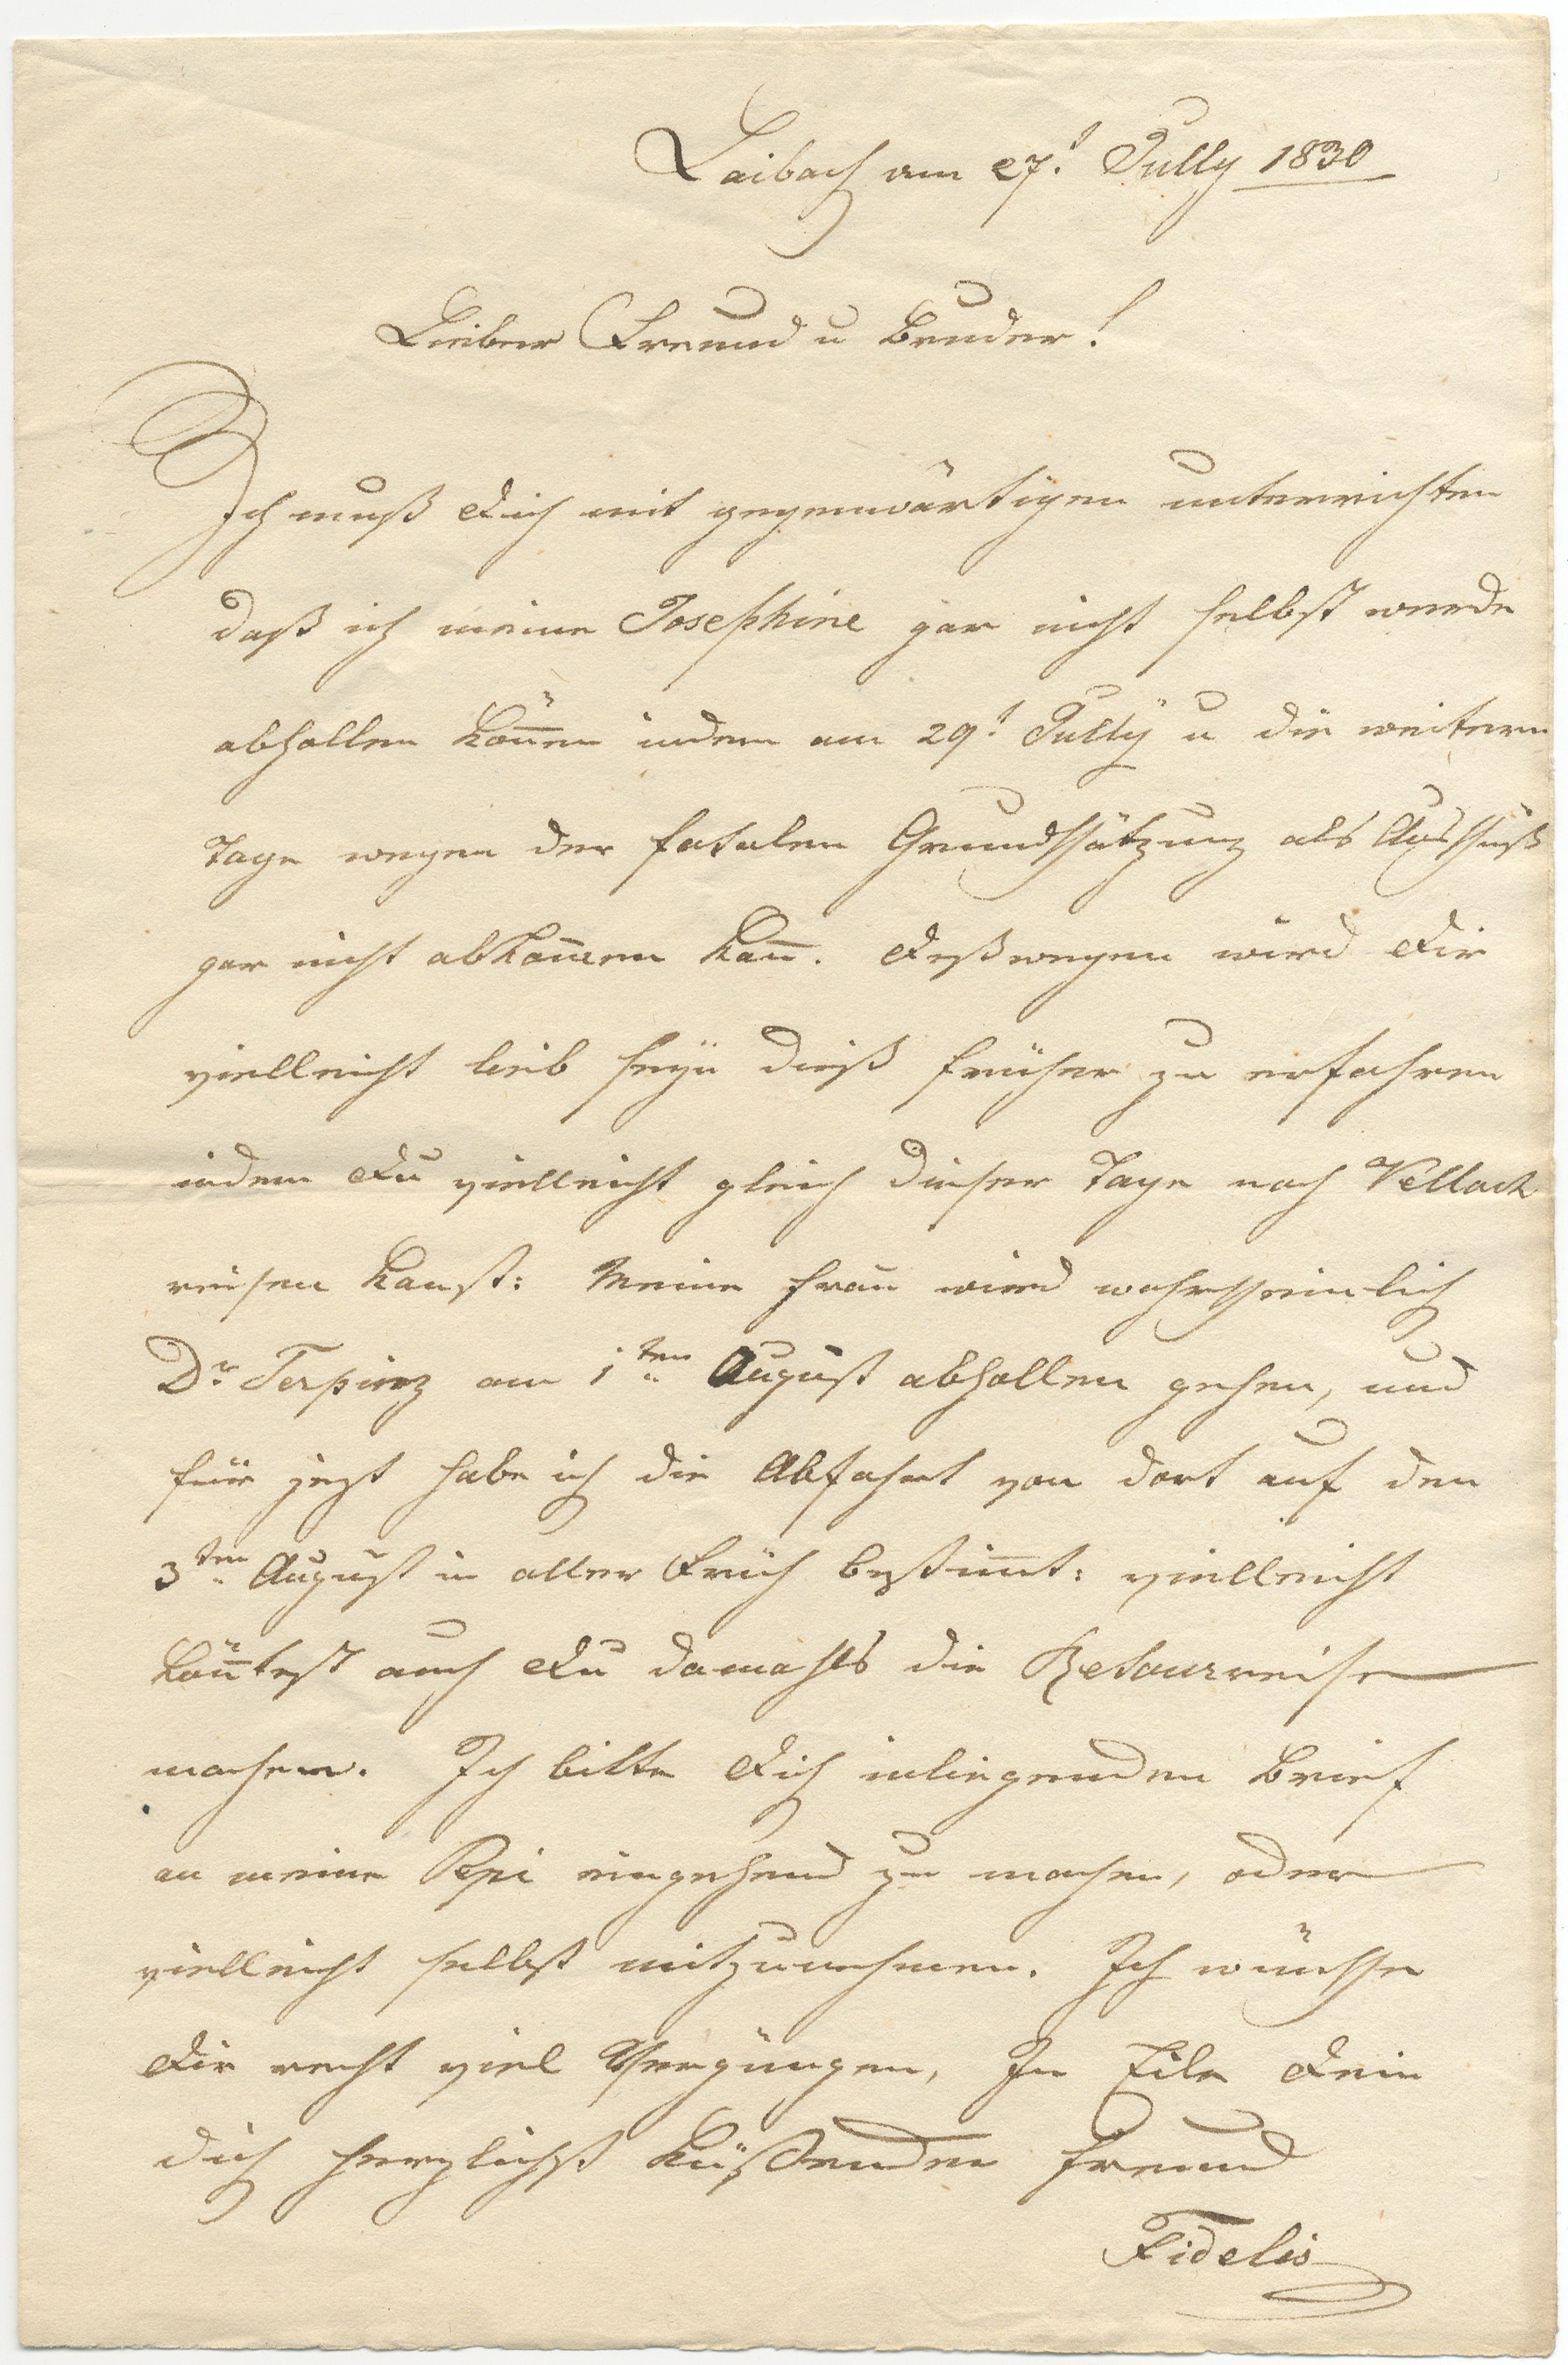 Laibach am 27.t July 1830
Lieber Freund u Bruder!
Ich muß Dich mit gegenwärtigen unterrichten
daß ich meine Josephine gar nicht selbst werde
abhollen kön̅en indem am 29.t Jullÿ u die weitern
Tage wegen der fatalen Grundschätzung als Ausschuß
gar nicht abkom̅en kan̅. Deßwegen wird Dir
vielleicht lieb seÿn dieß früher zu erfahren
indem Du vielleicht gleich dieser Tage nach Vellach
reisen kanst: Meine Frau wird wahrscheinlich
Dr Terpinz am 1ten August abhollen gehen, und
für jezt habe ich die Abfahrt von dort auf den
3ten August in aller Früh bestim̅t: vielleicht
kön̅test auch Du damahls die Retourreise
machen. Ich bitte Dich inliegenden Brief
an meine Pepi eingehend zu machen, oder
vielleicht selbst mitzunehmen. Ich wünsche
Dir recht viel Vergnügen, In Eile Dein
Dich herzlichst küßender Freund
Fidelis